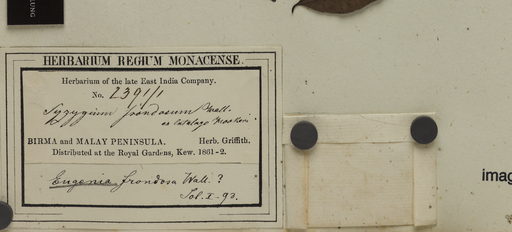 LUNG
HERBARIUM REGIUM MONACENSE.
Herbarium of the late East India Company.
No. 2391/1
Syzygium frondosum Wall.
ex Catalogo
BIRMA and MALAY PENINSULA. Herb. Griffith.
Distributed at the Royal Gardens, Kew. 1861-2.
Eugenia frondosa Wall. ?
Sol. X-93.
imag